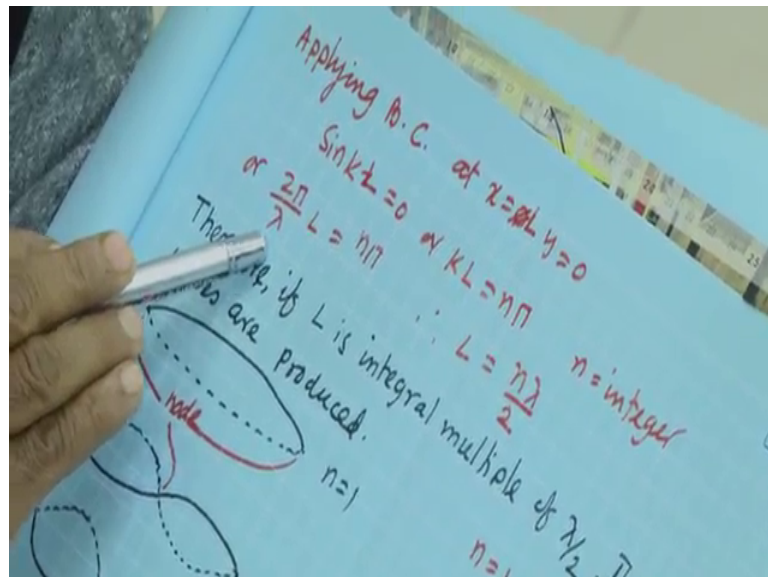 Applying B.C. at x=L y=0
sin kL = 0 or kL = nπ n = integer
or 2π/λ L = nπ ∴ L = nλ/2
if L is integral multiple of λ/2,
are produced.
node
n=1